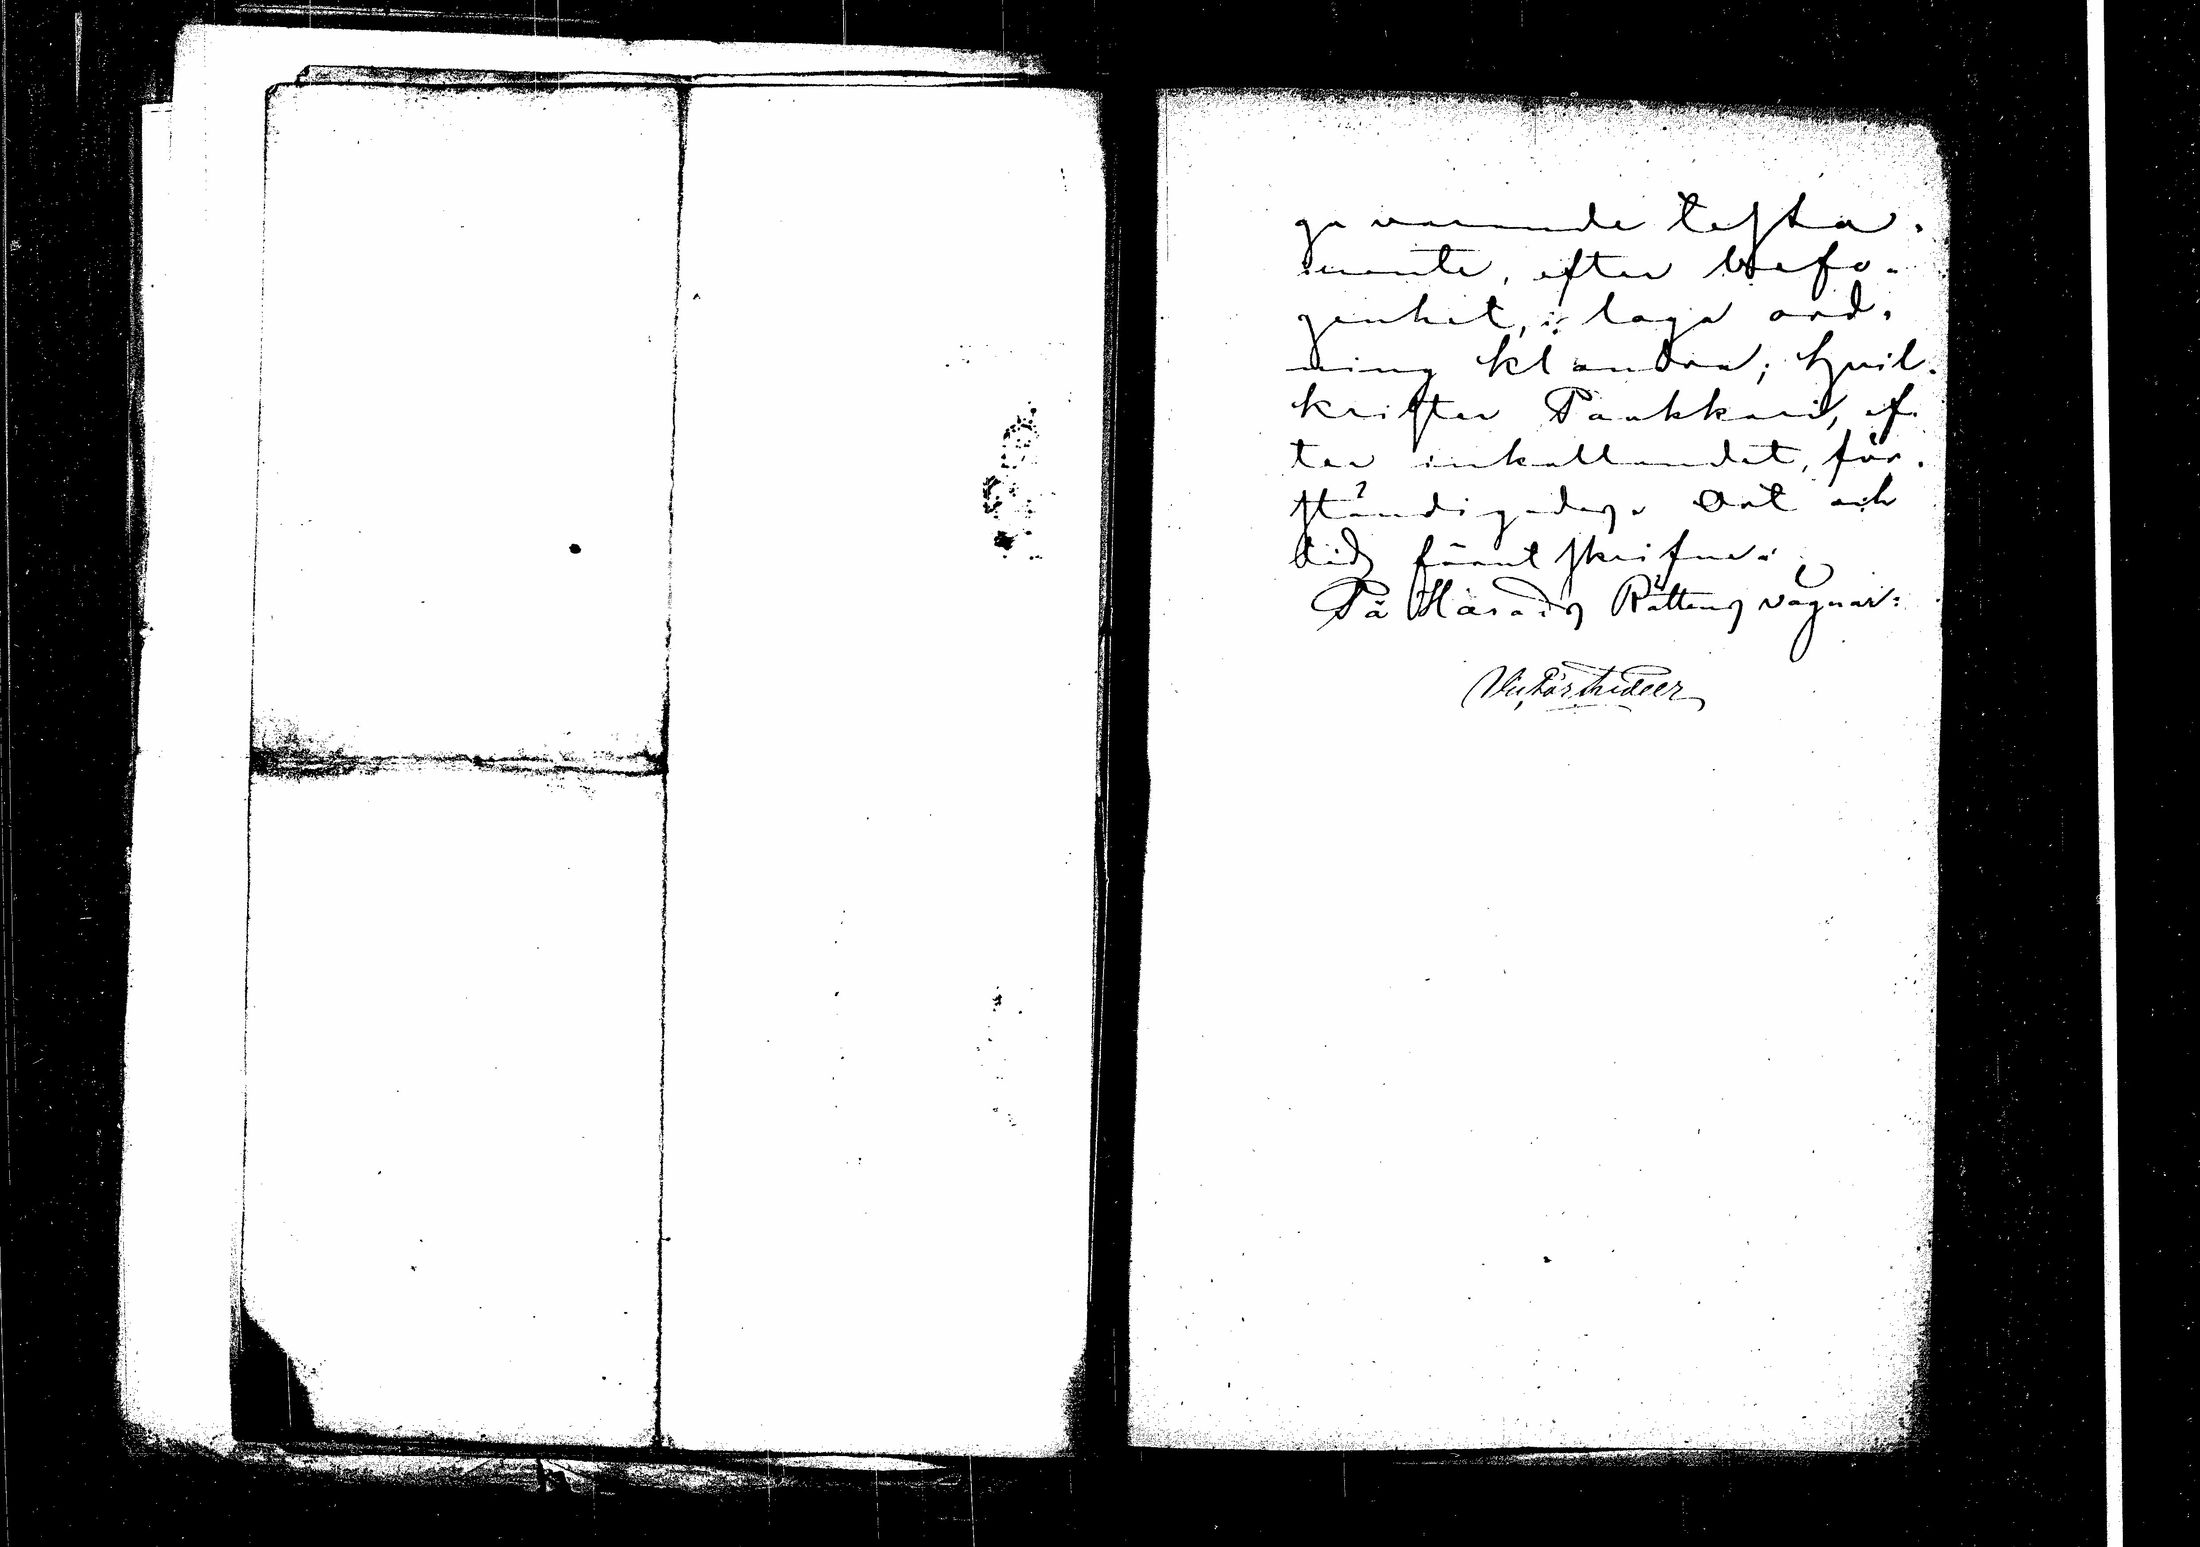 ga varande testa-
mente, efter befo-
genhet, i laga ord-
ning klandra; hvil-
ket efter Paakkari, ef-
ter inkallandet, för-
ständigades. Ort och
tid förut skrifne.
På Härads Rättens vägnar: